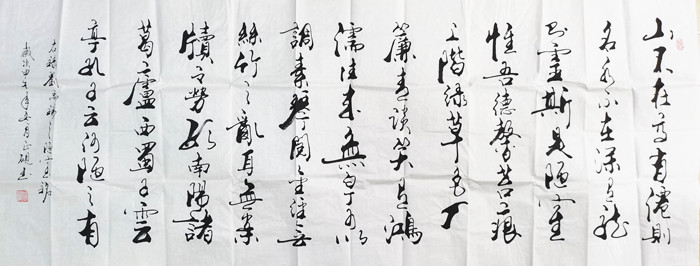 山不在高有僊則
名水不在深有龍
則靈斯是陋室
惟吾德馨苔痕
上階綠草色入
簾青談笑有鴻
儒往來無白丁可以
調素琴閱金經無
絲竹之亂耳無案
牘之勞形南陽諸
葛廬西蜀子雲
亭孔子云何陋之有
右錄劉禹錫之陋室銘
歲次甲午年月書